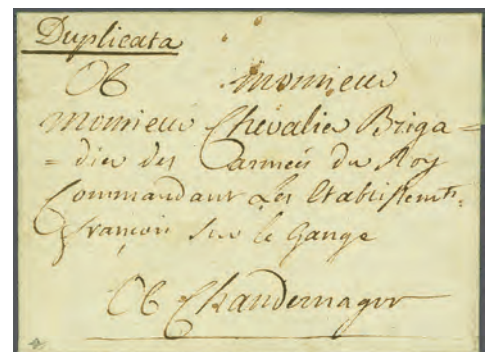 Duplicata
A Monsieur
Monsieur Chevalier Briga=
=dier des Armées du Roy
Commandant Les Etablissemts.
françois sur le Gange
A Chandernagor